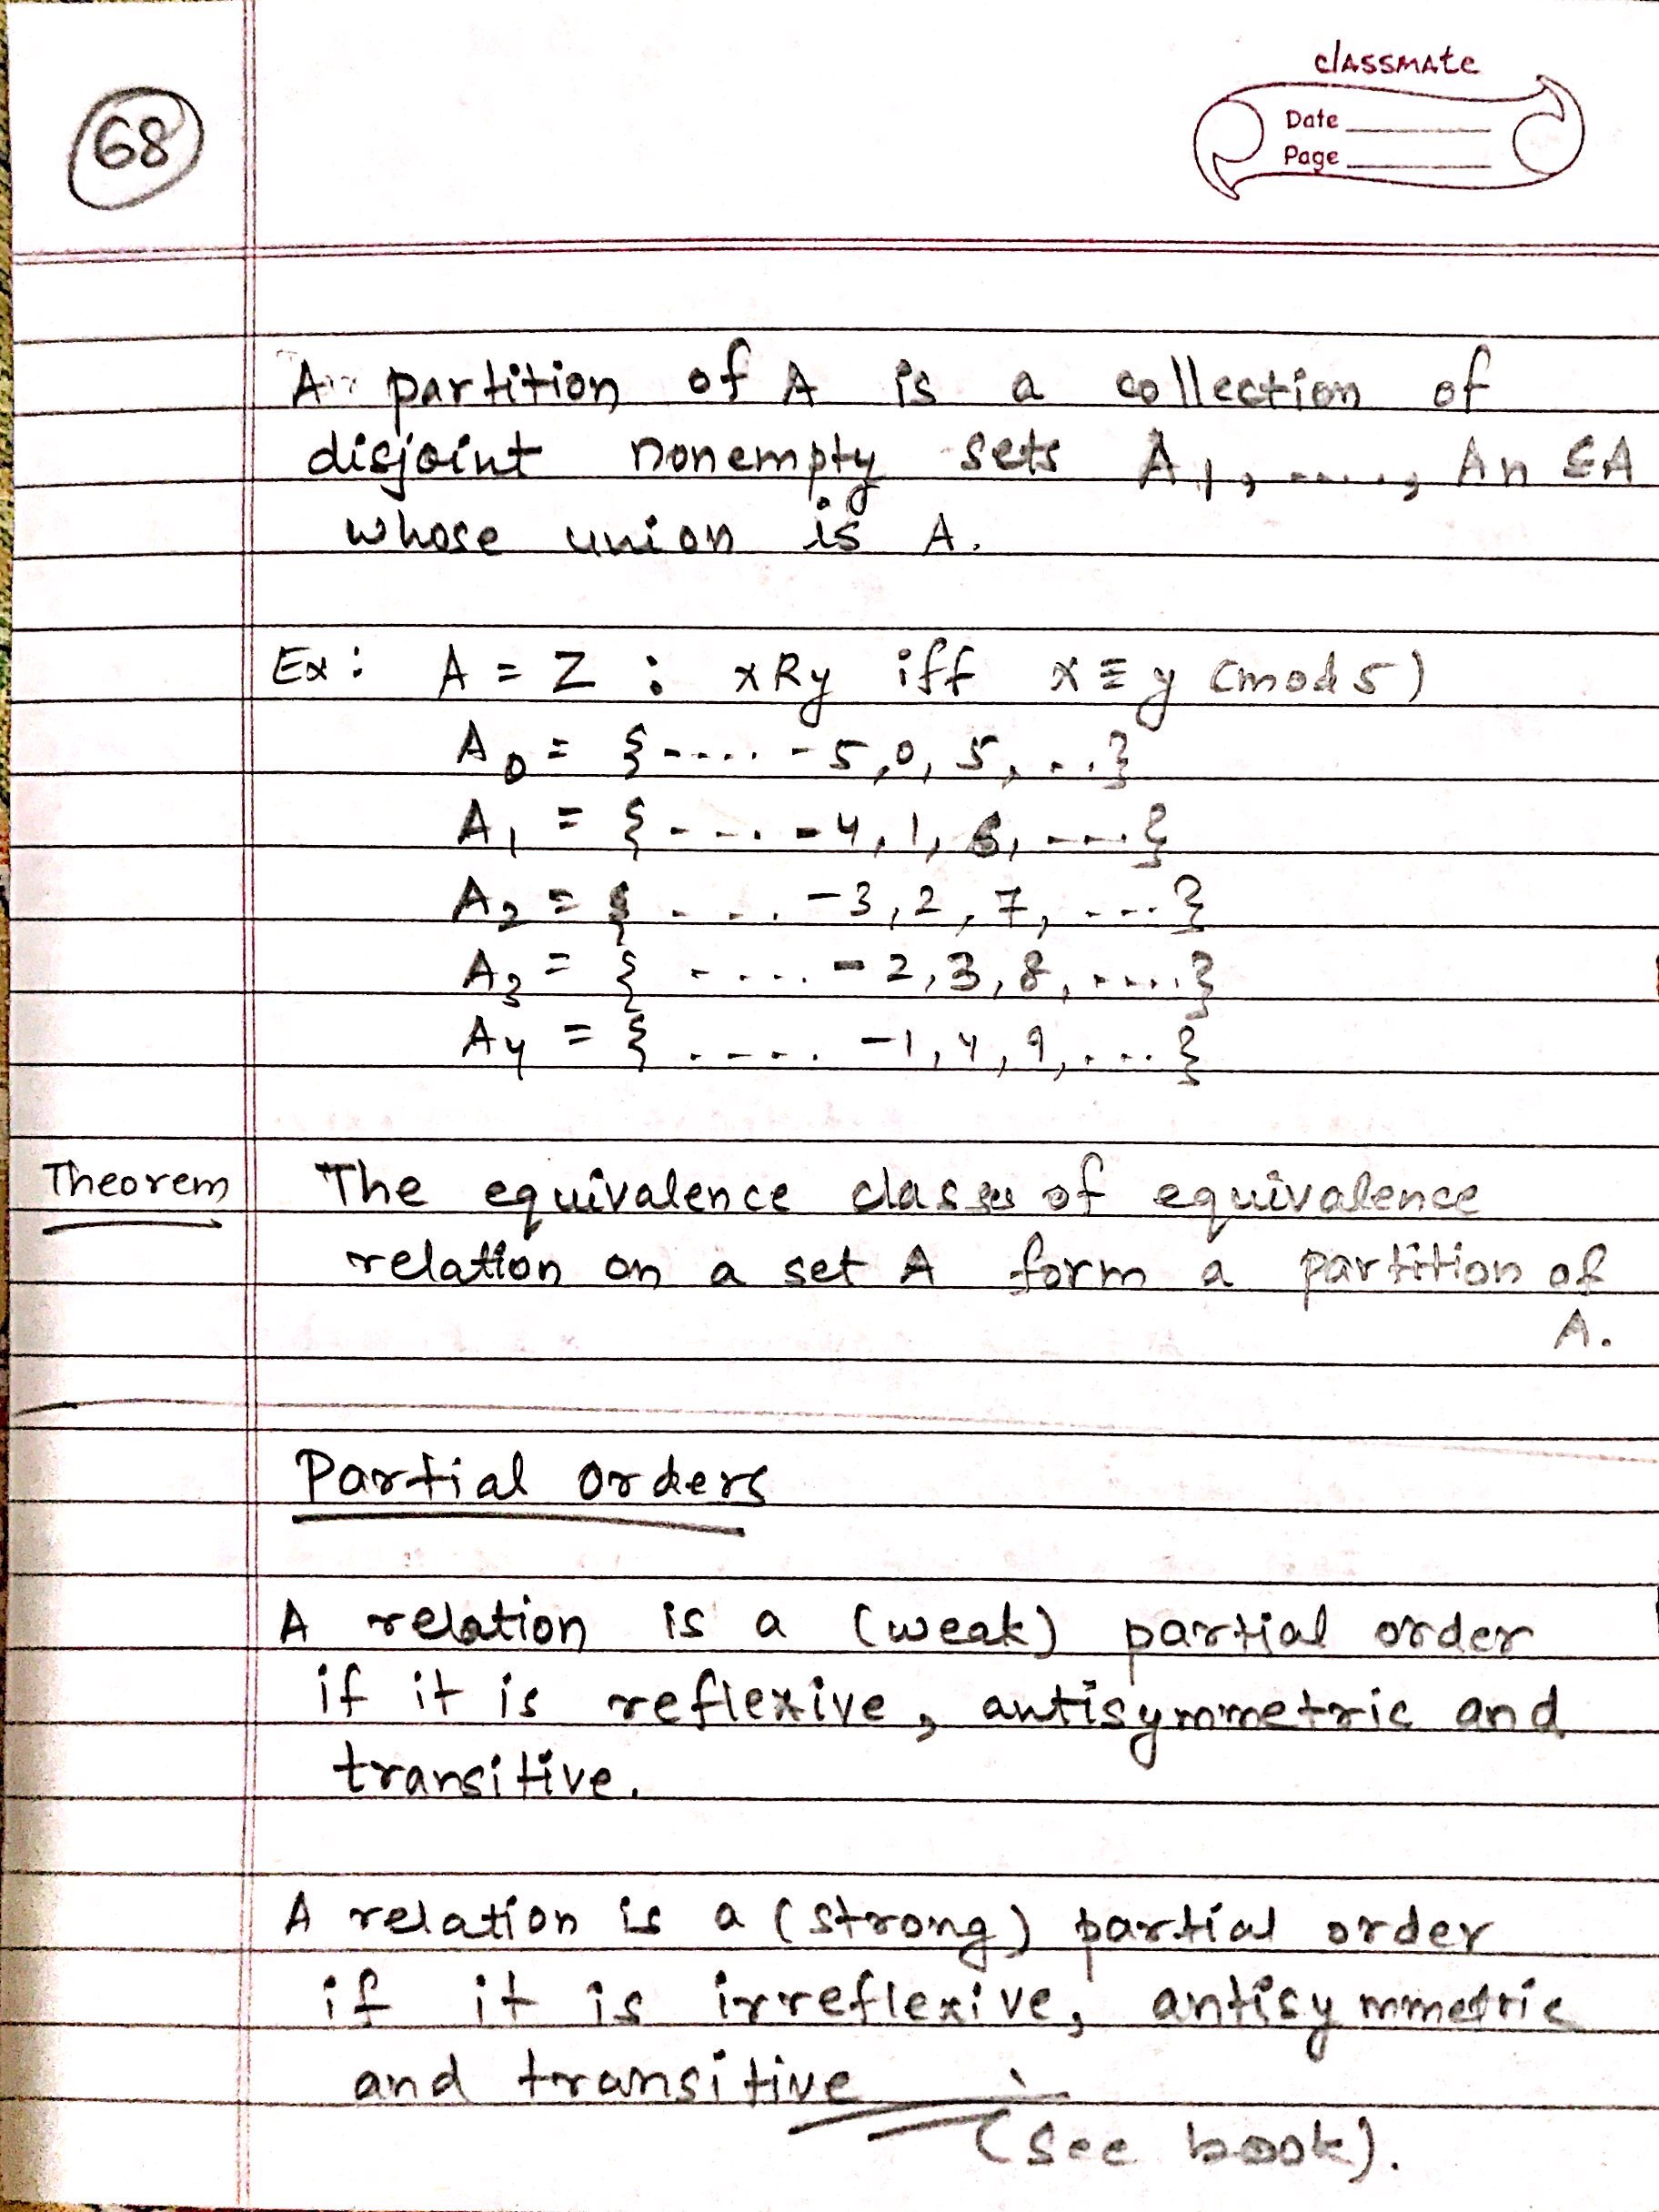 68
classmate
Date
Page
A partition of A is a collection of
disjoint nonempty sets A1, ....., An ⊆ A
whose union is A.
Ex: A = Z : xRy iff x ≡ y (mod 5)
A0 = {..... -5, 0, 5, ...}
A1 = {.... -4, 1, 6, ....}
A2 = {.... -3, 2, 7, ....}
A3 = {..... -2, 3, 8, .....}
A4 = {..... -1, 4, 9, ....}
Theorem The equivalence classes of equivalence
relation on a set A form a partition of
A.
Partial Orders
A relation is a (weak) partial order
if it is reflexive, antisymmetric and
transitive.
A relation is a (strong) partial order
if it is irreflexive, antisymmetric
and transitive
(See book).